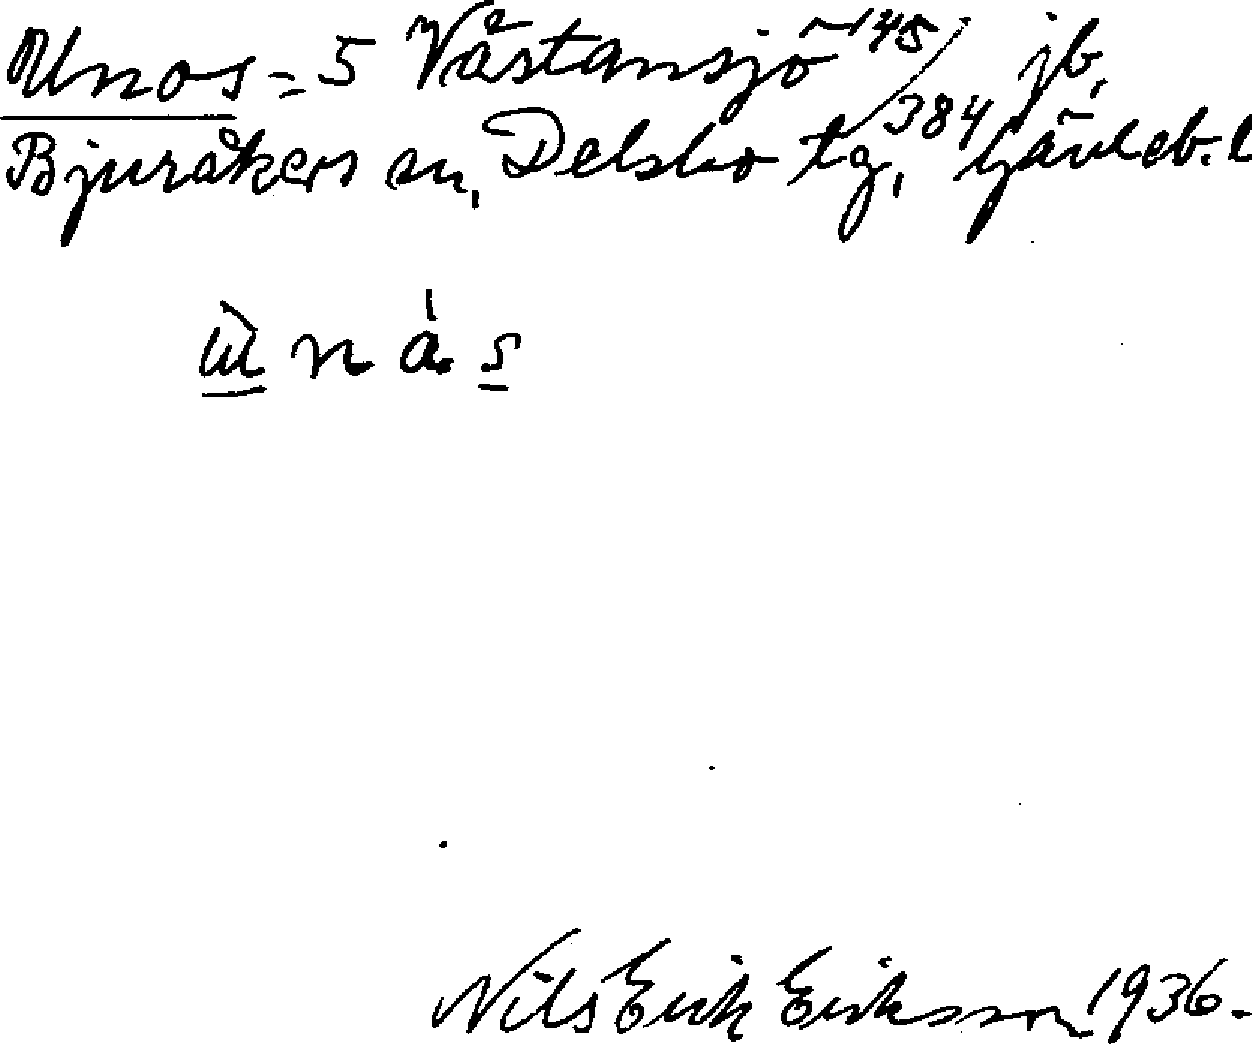 Unos = 5 Västansjö 145/384 jb,
Bjuråkers sn, Delsbo tg, Gävleb. l
ù n á. s
Nils Erik Eriksson 1936.